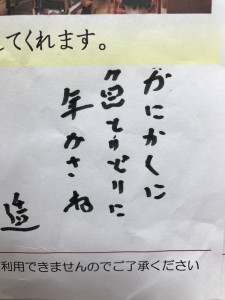 てくれます。
がにかくに
色とりどりに
年かさね
遊
利用できませんのでご了承ください